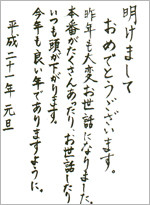 明けまして
おめでとうございます。
昨年も大変お世話になりました。
本番がたくさんあったり、お世話したり
いつも頭が下がります。
今年も良い年でありますように。
平成二十一年 元旦